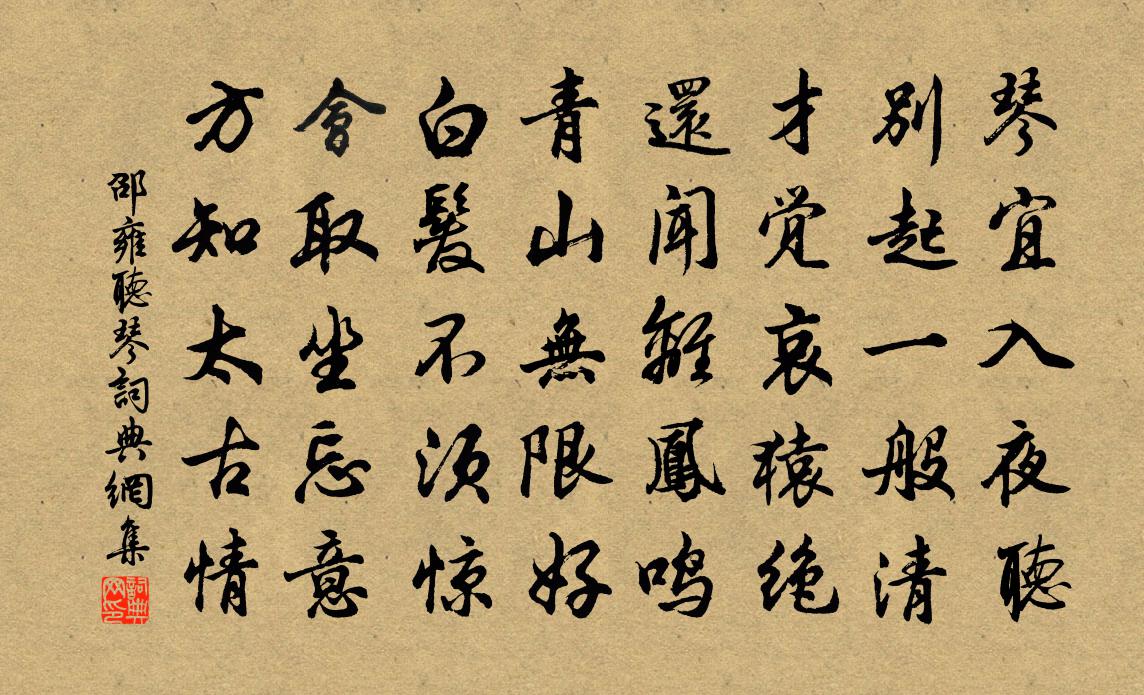 琴宜入夜聽
别起一般清
才觉哀猿绝
還聞離鳳鸣
青山無限好
白髮不須惊
會取坐忘意
方知太古情
邵雍聽琴詞典網集
詞典网印